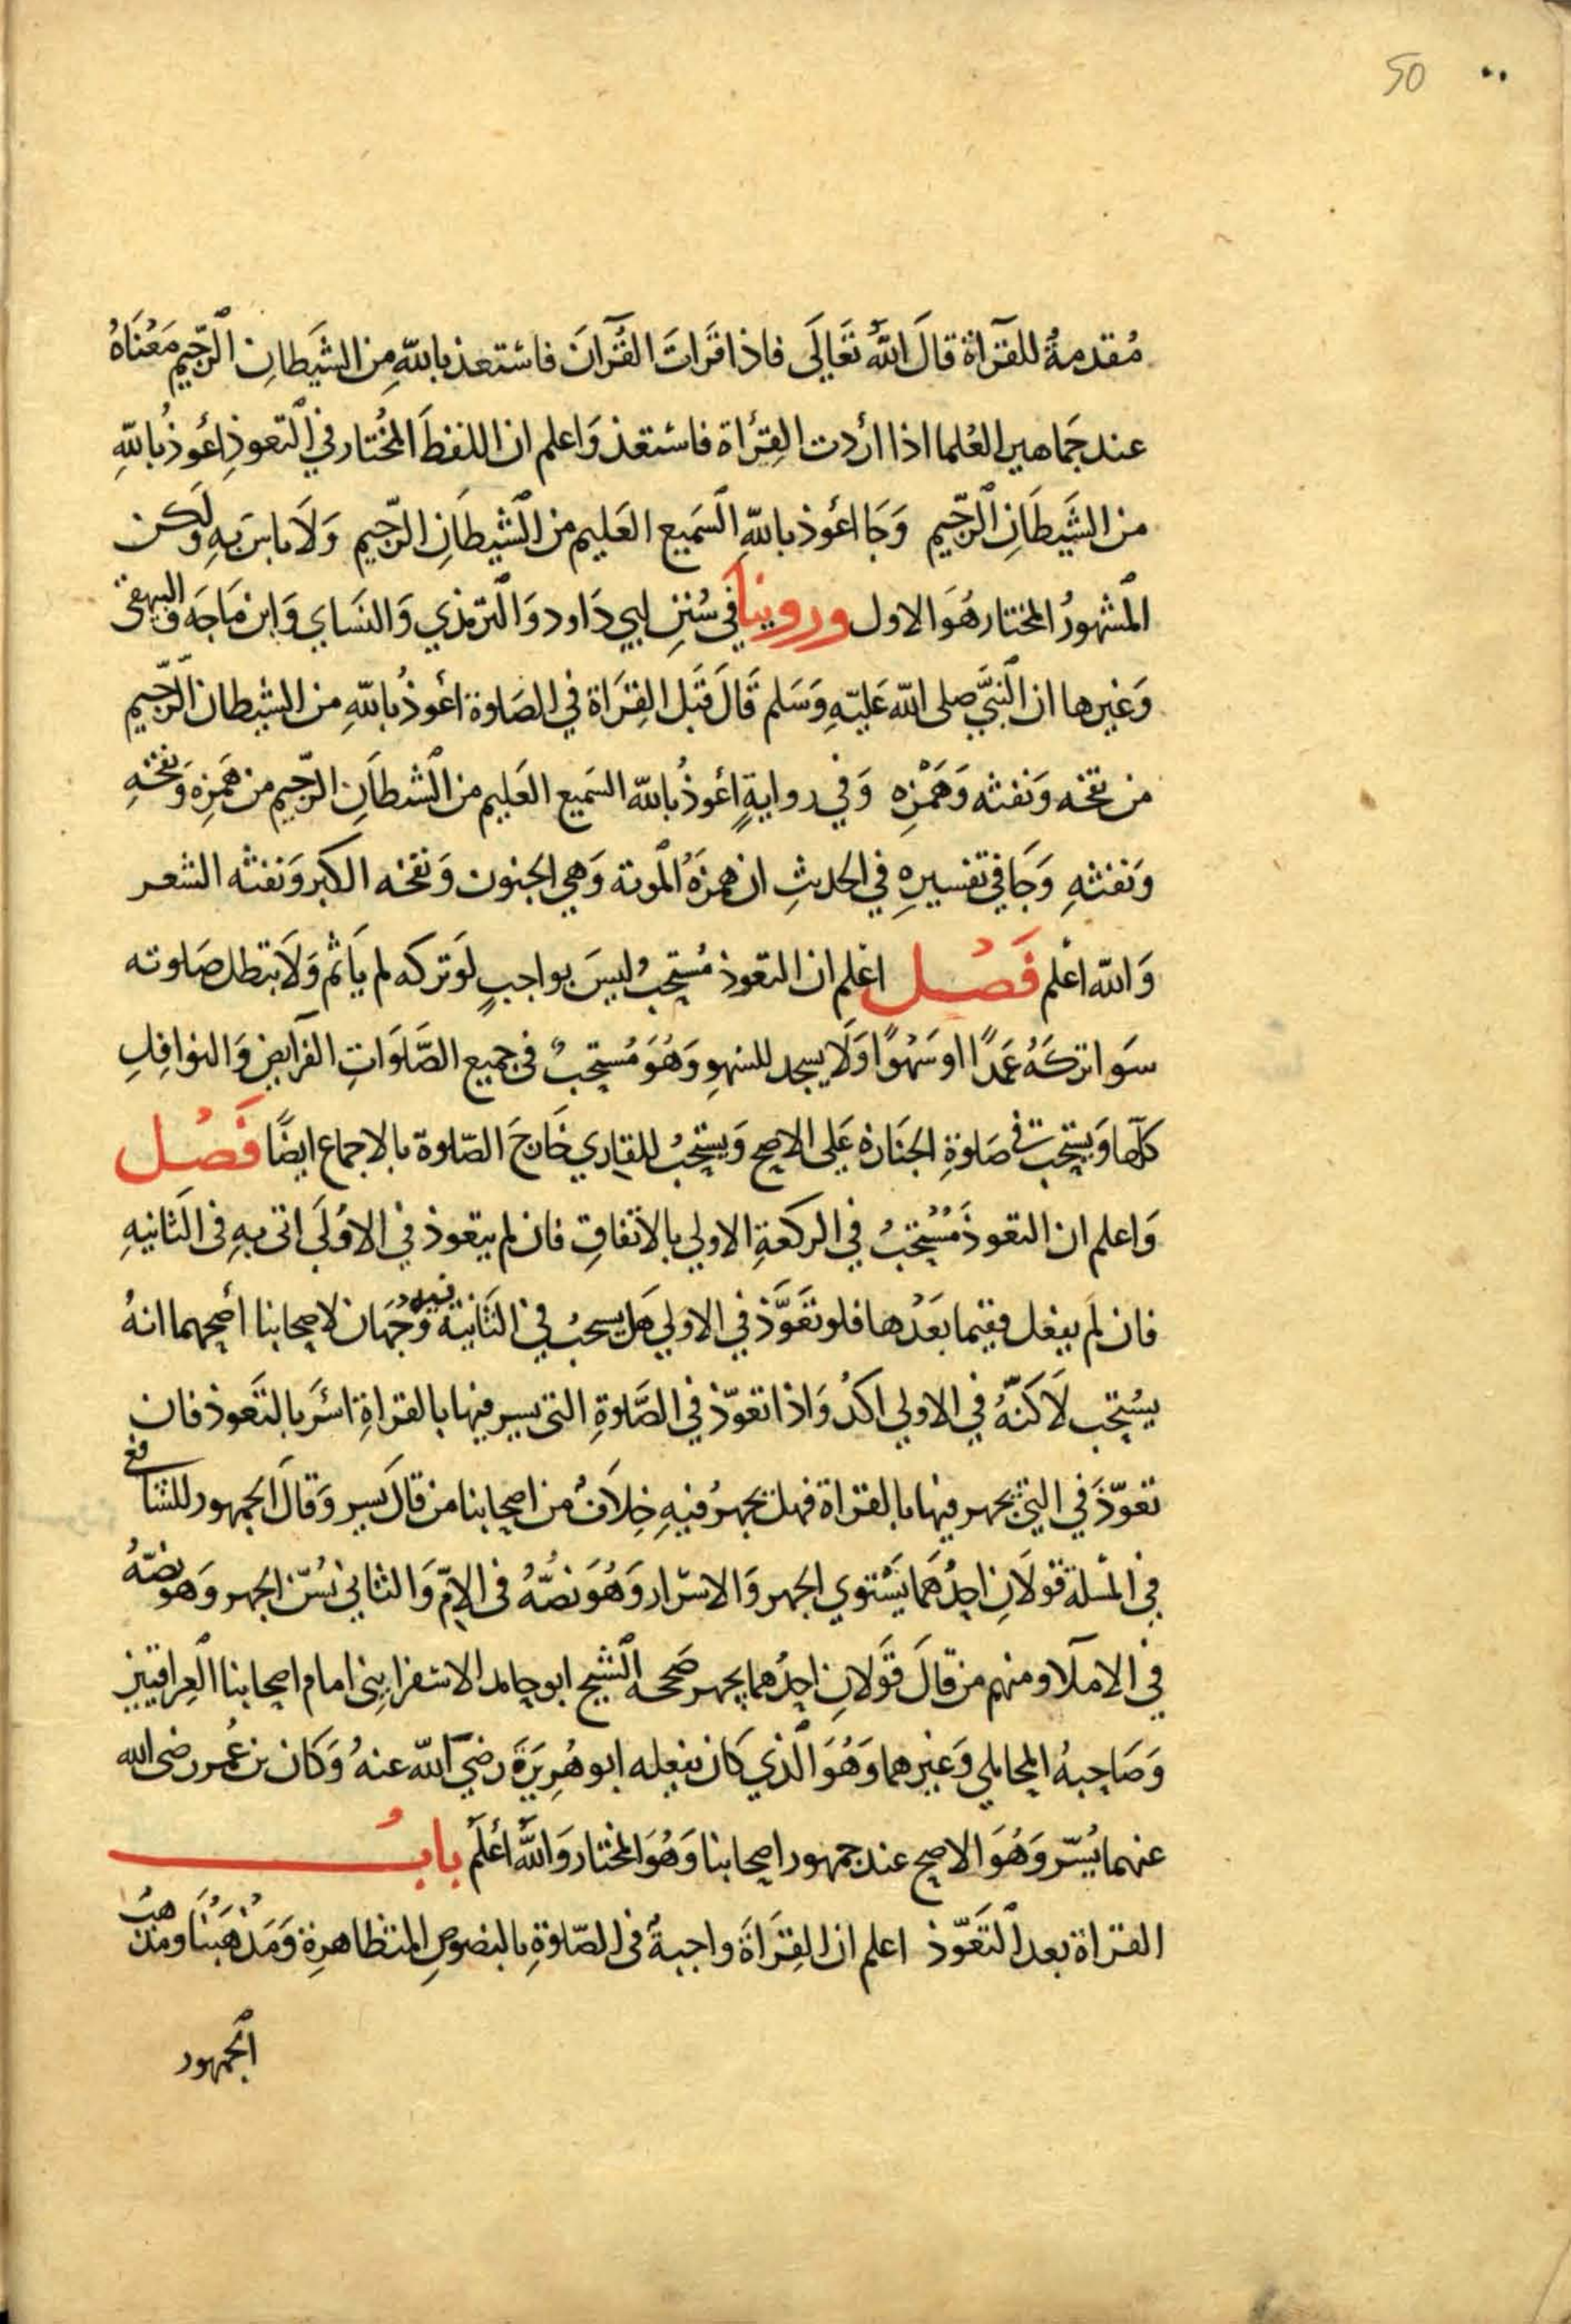 50
مُقدمةٌ للقرآة قالَ اللهُ تعَالَى فاذا قَراتَ القُرآنَ فاستعذ باللهِ مِن الشيَطانِ الرّجيم مَعْنَاهُ
عند جمَاهير العُلما اذا أردت القِرأة فاستعذ وَاعلم ان اللفظَ المُختار في التعوذِ أعُوذُ باللهِ
من الشَيطَانِ الرّجيم وَجَا اعُوذ باللهِ السَميع العَليم من الشيطَانِ الرّجيم وَلَا باسَ بهِ ولَكن
المشهورُ المختار هُوَ الاول وروينا في سُننِ ابي دَاود وَالترمذي وَالنسَاي وَابن مَاجَه والبيهقى
وَغيرها ان النبيَّ صلى الله عَليهِ وَسَلم قَالَ قبَل القِرَاة في الصَلوة اعُوذُ باللهِ من الشيطان الرّجيم
من نفخه وَنفثه وَهَمْزِه وَفي روايةٍ اعُوذُ بالله السَميع العَليم من الشيطَانِ الرّجيم من هَمزِه وَنفخهِ
وَنفثهِ وَجَا في تفسيرهِ في الحديثِ ان همزَهُ الموتة وَهي الجنون وَنفخه الكبر وَنفثه الشعر
وَالله اعْلم فَصْل اعْلم ان التعوذ مُستحبٌ ليسَ بواجبٍ لوَ تركه لم يَاثم وَلَا تبطل صَلوته
سَوا تركهُ عَمدًا او سَهْوًا وَلَا يسجد للسَهوِ وَهُوَ مُستحبٌ فى جميع الصَّلَوَاتِ الفرايض وَالنوافِلِ
كلّها وَيستحب في صَلوةِ الجنَازة عَلى الاصح وَيستحَبُ للقاري خَارجَ الصّلوة بالاجماع ايضًا فَصْل
وَاعلم ان التعوذ مُسْتحَبٌ في الركعةِ الاولي بالاتفاقِ فان لم يتعوذ في الاوُلَى اتى بهِ فى الثَانيهِ
فان لَم يفعل ففيما بَعْدها فلو تعَوَّذ في الاولي هَل يسحبُ في الثَانية فيه وَجْهان لاصحابنا أصحهما انهُ
يسُتحب لَاكنّهُ في الاولي اكدُ وَاذا تعوّذ في الصَّلوةِ التي يسر فيها بالقراةِ اسَرَ بالتعَوذ فان
تعوّذَ في التي يجهر فيها بالقراة فهل يجهرُ فيهِ خِلَافٌ من اصحابنا من قالَ يسر وَقالَ الجمهور للشافعي
في المسْلة قولَانِ احِدُهمَا يَسْتوي الجهر وَالاسرَار وَهُوَ نصُّهُ فى الامّ وَالثاني يسُنّ الجهر وَهو نصّهُ
في الاملَا ومنهم من قالَ قَولانِ احِدُهما يجهر صَححه الشيخ ابو حامد الاسفرايني امام اصحابنا العراقيين
وَصَاحِبهُ المحاملي وَغيرهما وَهُوَ الذي كَان يفعِله ابو هُريرَة رضيَ اللهّ عنهُ وَكان بن عُمر رضى الله
عنهما يُسّر وَهُوَ الاصح عند جمهور اصحابنا وَهُوَ المختار وَاللهُ أعْلَم بابُ
القراة بعد التعَوّذ اعلم ان القِرَاةَ واجبةٌ فى الصّلوةِ بالنصوصِ المتظاهِرةِ وَمَذْهَبُنَا ومذهبُ
الجمهور